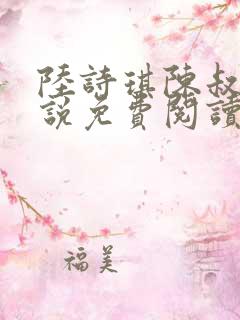 陸詩琪陳叔
說免費閱讀
福美